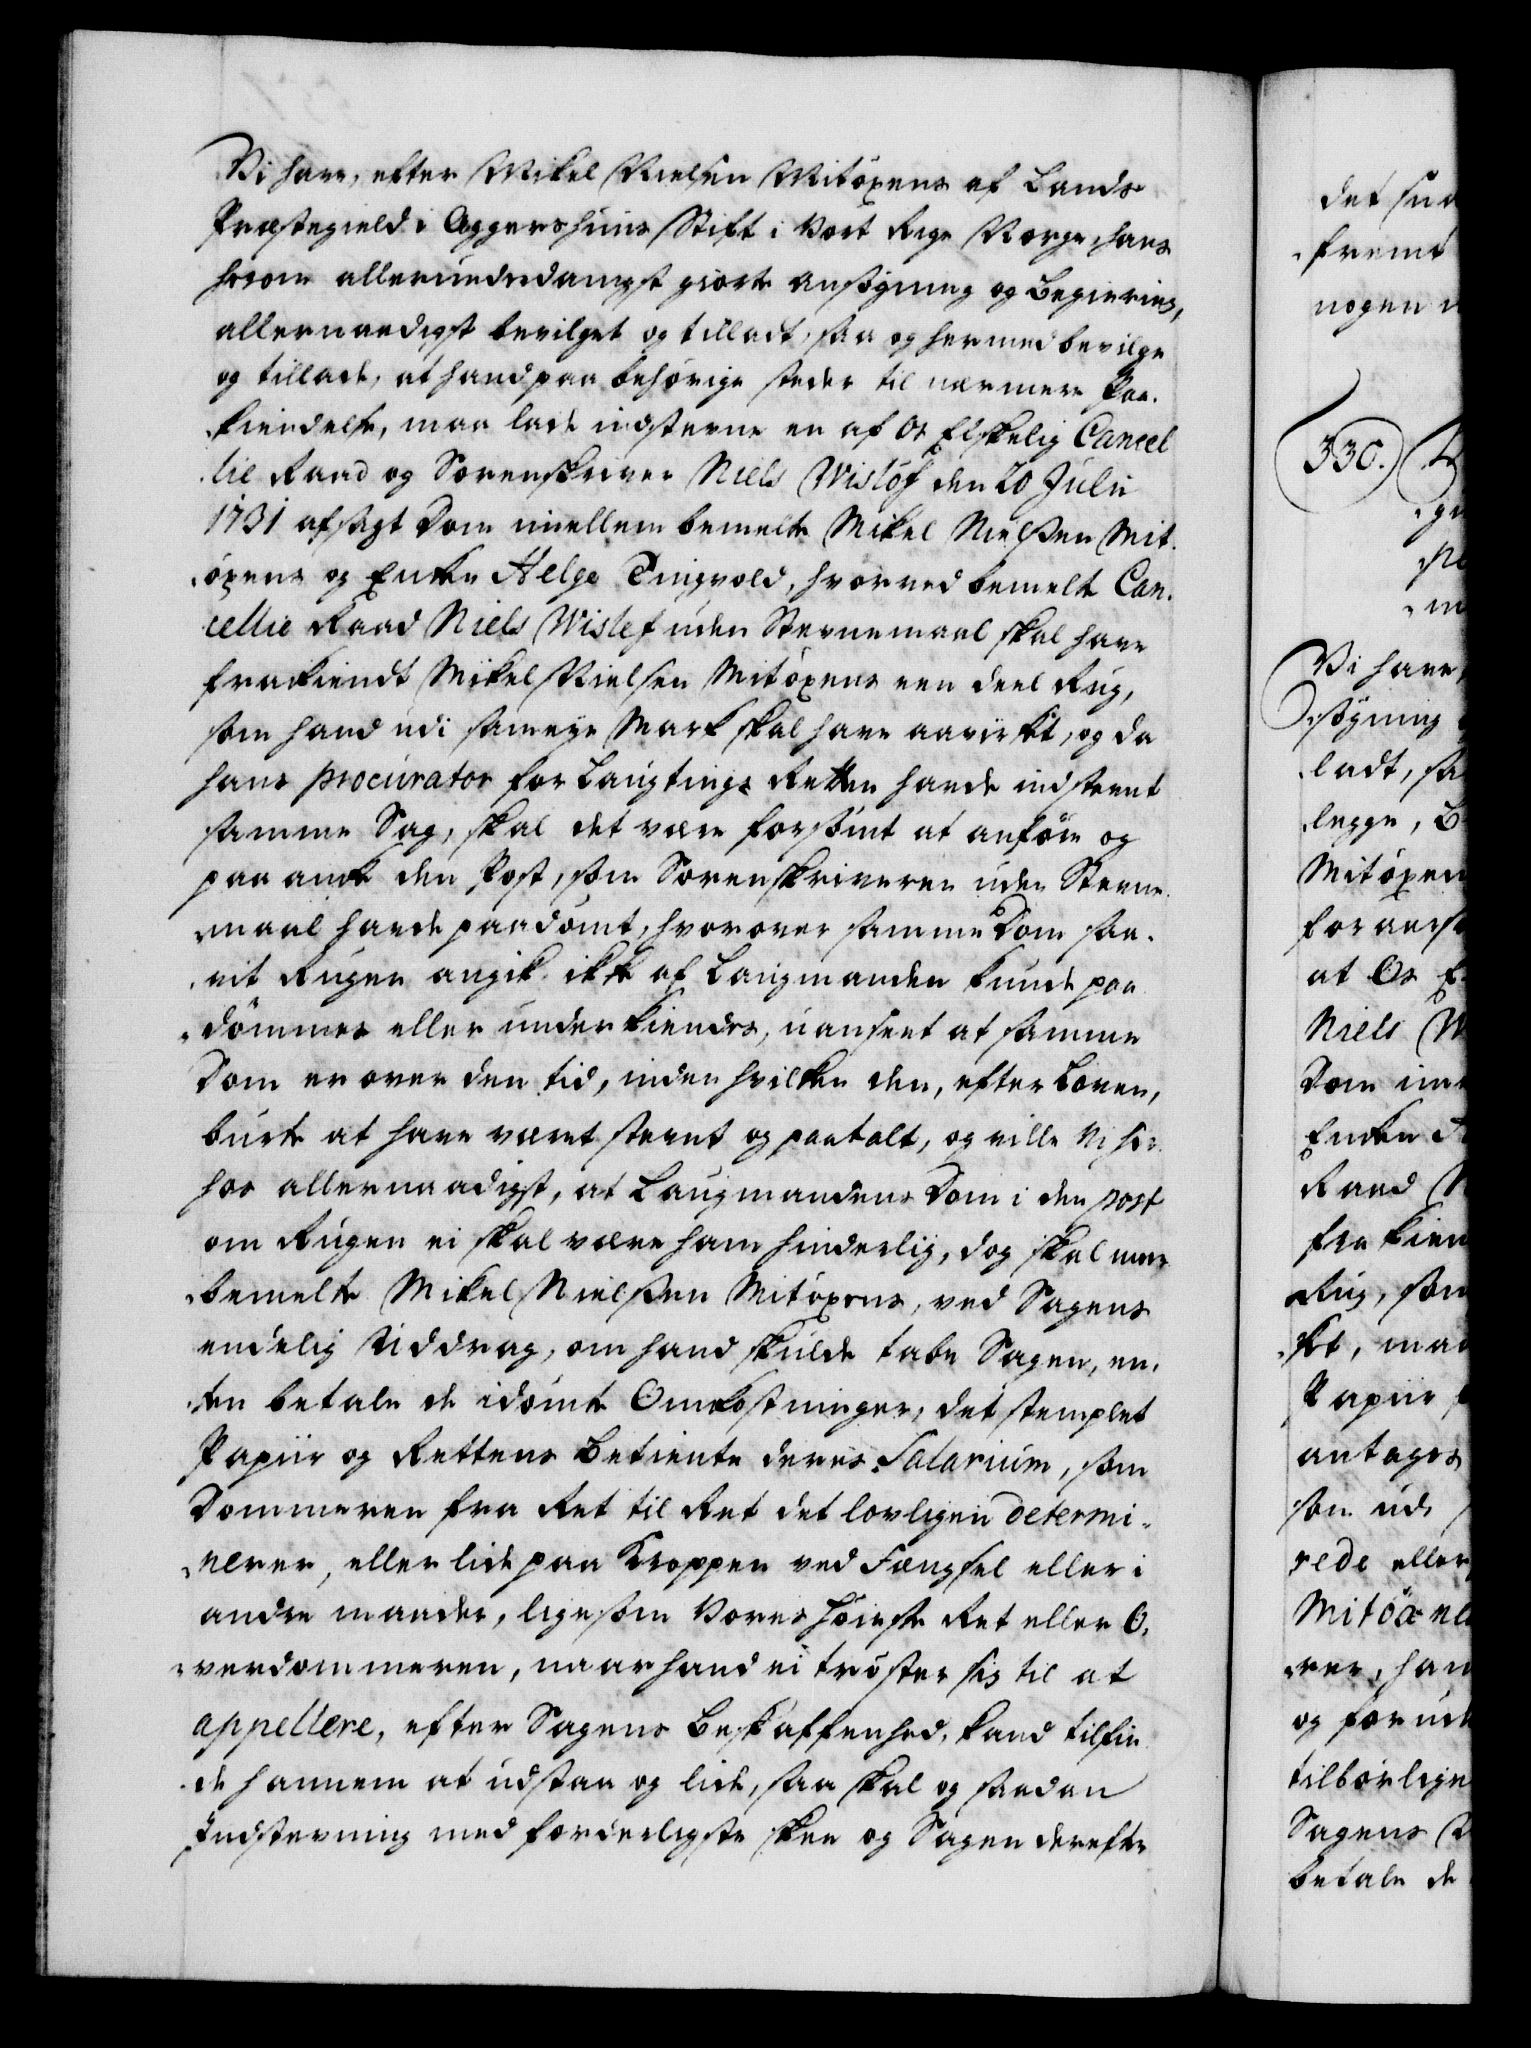 Vi have, efter Mikel Nielsen Mitöxens af Lands
Præstegield i Aggershuus Stift i Vort Rige Norge, hans
herom allerunderdanigst giorte Ansögning og Begiering,
allernaadigst bevilget og tilladt, saa og hermed bevilge
og tillade, at hand paa behörige steder til nærmere Paa-
kiendelse, maa lade indstevne en af Os Elskelig Cancel
lie Raad og Sorenskriver Niels Wislöf den 20 Julii
1731 afsagt Dom imellem bemelte Mikel Nielssen Mit-
öxens og Enken Helge Tingvold, hvorved bemelte Can-
cellie Raad Niels Wislef uden Stevnemaal skal have
frakiendt Mikel Nielsen Mitöxens een deel Rug,
som hand udi sameye Mark skal have aavirket, og da
hans procurator for Laugtings Retten havde indstevnt
samme Sag, skal det være forsömt at anföre og
paaanke den Post, som Sorenskriveren uden Stevne-
maal havde paadömt, hvorover samme Dom saa-
vit Rugen angik ikke af Laugmanden kunde paa
dömmes eller underkiendes, uanseet at samme
Dom er over den tid, inden hvilken den, efter Loven,
burte at have været stevnt og paatalt, og ville Vi her-
hos allernaadigst, at Laugmandens Dom i den post
om Rugen ei skal være ham hinderlig, dog skal meer
bemelte Mikel Nielssen Mitöxens, ved Sagens
endelig Uddrag, om hand skulde tabe Sagen, en-
ten betale de idömte Omkostninger, det stemplet
Papiir og Rettens Betiente deres Salarium, som
Dommeren fra Ret til Ret det lovligen determi-
nerer, eller lide paa Kroppen ved Fængsel eller i
andre maader, ligesom Vores Höieste Ret eller O-
verdommeren, naar hand ei tröster sig til at
appellere, efter Sagens Beskaffenhed, kand tilfin
de hannem at udstaa og lide, saa skal og saadan
Indstevning med forderligste skee og Sagen derefter
det sua
fremt
nogen
330.
ge
Vi have
sögning
ladt, sa
legge, B
Mitöxen
foraarsa
at Os E
Niels W
Dom im
Enken
Raad N
fra kien
Rug, som
ket, maa
Papiir
antages
som uds
rede eller
Mitöxens
rer, han
og for ud
tilbörlige
Sagens
betale de